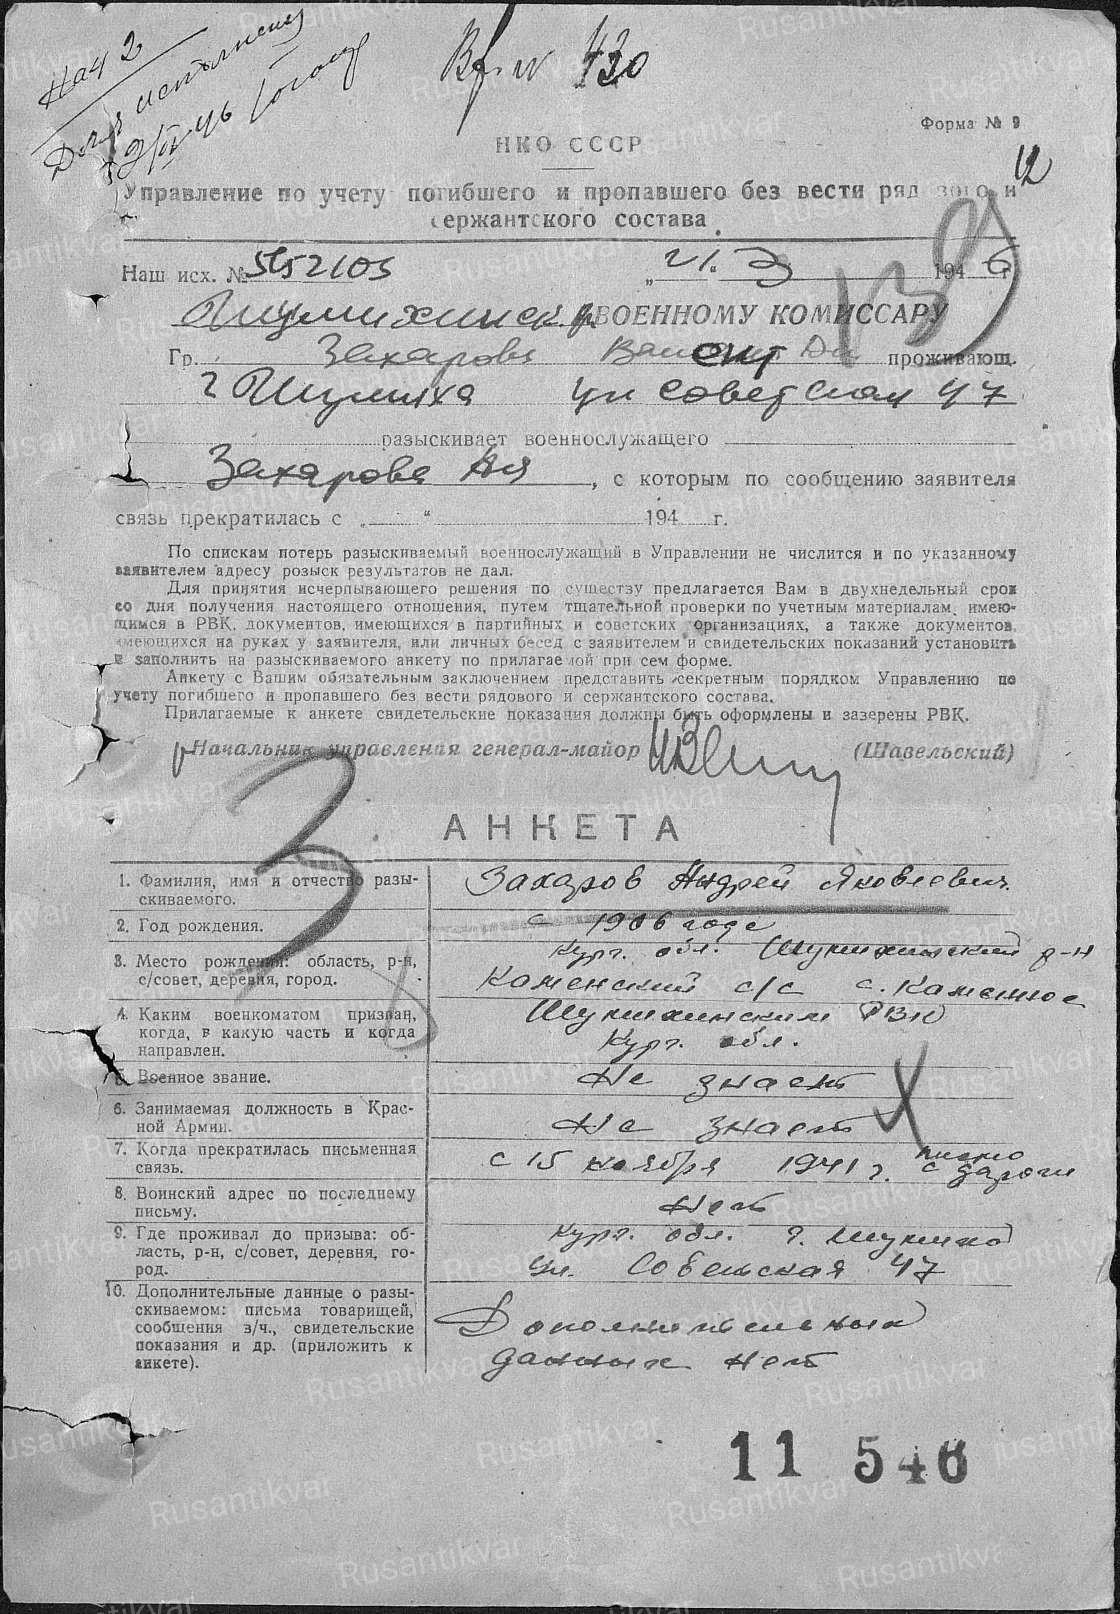 Нач 2
Для исполнения
430
Форма № 9
12
НКО СССР
Управление по учету погибшего и пропавшего без вести рядового и
сержантского состава
139
Наш исх. № „21. 3 1946 г.
Шумихинск. р. ВОЕННОМУ КОМИССАРУ
Гр. Захарова проживающ.
г Шумиха ул Советская 47
разыскивает военнослужащего
Захарова АЯ, с которым по сообщению заявителя
связь прекратилась с „ “ 194 г.
По спискам потерь разыскиваемый военнослужащий в Управлении не числится и по указанному
заявителем адресу розыск результатов не дал.
Для принятия исчерпывающего решения по существу предлагается Вам в двухнедельный срок
со дня получения настоящего отношения, путем тщательной проверки по учетным материалам, имею-
щимся в РВК, документов, имеющихся в партийных и советских организациях, а также документов,
имеющихся на руках у заявителя, или личных бесед с заявителем и свидетельских показаний установить
и заполнить на разыскиваемого анкету по прилагаемой при сем форме.
Анкету с Вашим обязательным заключением представить секретным порядком Управлению по
учету погибшего и пропавшего без вести рядового и сержантского состава.
Прилагаемые к анкете свидетельские показания должны быть оформлены и заверены РВК.
Начальник управления генерал-майор (Шавельский)
3
АНКЕТА
1. Фамилия, имя и отчество разы-
скиваемого.
Захаров Андрей Яковлевич.
2. Год рождения.
с 1906 года
3. Место рождения: область, р-н,
с/совет, деревня, город.
Кург. обл. Шумихинский р-н
Каменский с/с с. Каменное
4. Каким военкоматом призван,
когда, в какую часть и когда
направлен.
Шумихинским РВК
Кург. обл.
5. Военное звание.
Не знает
6. Занимаемая должность в Крас-
ной Армии.
Не знает
7. Когда прекратилась письменная
связь.
с 15 ноября 1941 г. письмо
с дороги
8. Воинский адрес по последнему
письму.
Нет
9. Где проживал до призыва: об-
ласть, р-н, с/совет, деревня, го-
род.
Кург. обл. г. Шумиха
ул. Советская 47
10. Дополнительные данные о разы-
скиваемом: письма товарищей,
сообщения в/ч., свидетельские
показания и др. (приложить к
анкете).
Дополнительных
данных нет
11 546
Rusantikvar